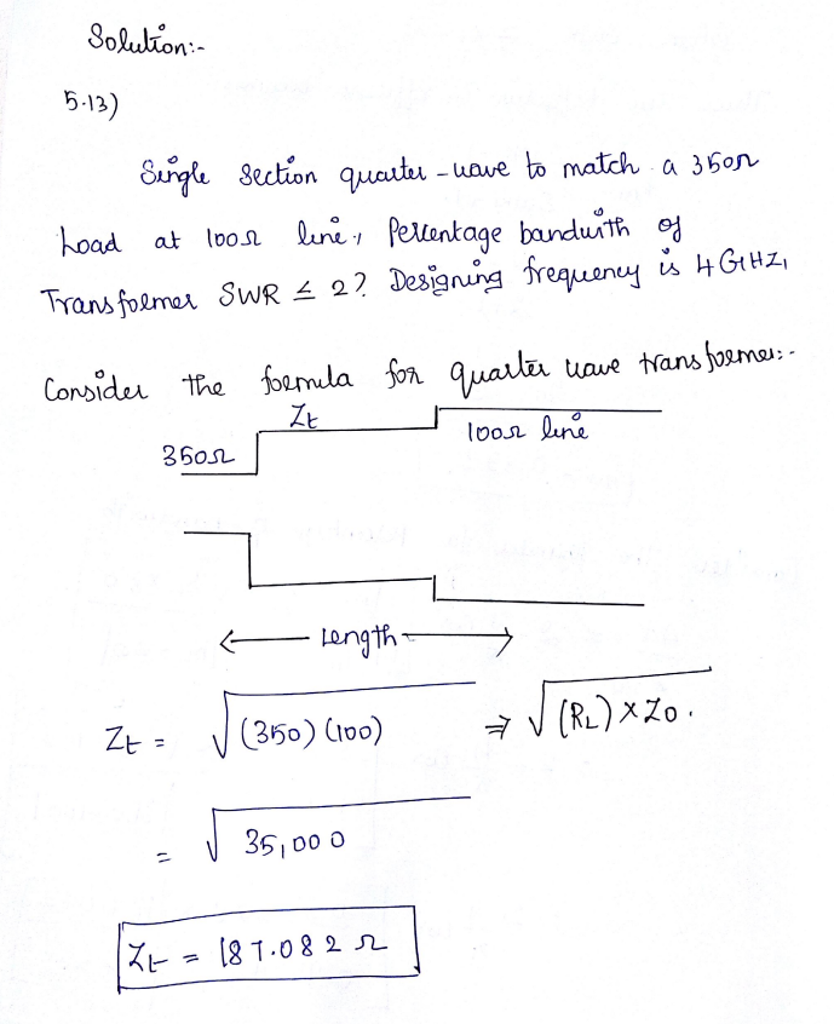 Solution:-
5.13)
Single section quarter-wave to match a 350Ω
Load at 100Ω line, Percentage bandwith of
Transformer SWR ≤ 2? Designing frequency is 4 GHZ,
Consider the formula for quarter wave transformer:-
Zt
350Ω
100Ω line
Length
Zt = √(350)(100) ⇒ √(RL)×Zo.
= √35,000
Zt = 187.082 Ω